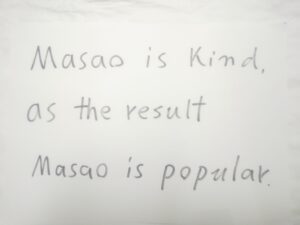 Masao is Kind,
as the result
Masao is popular.